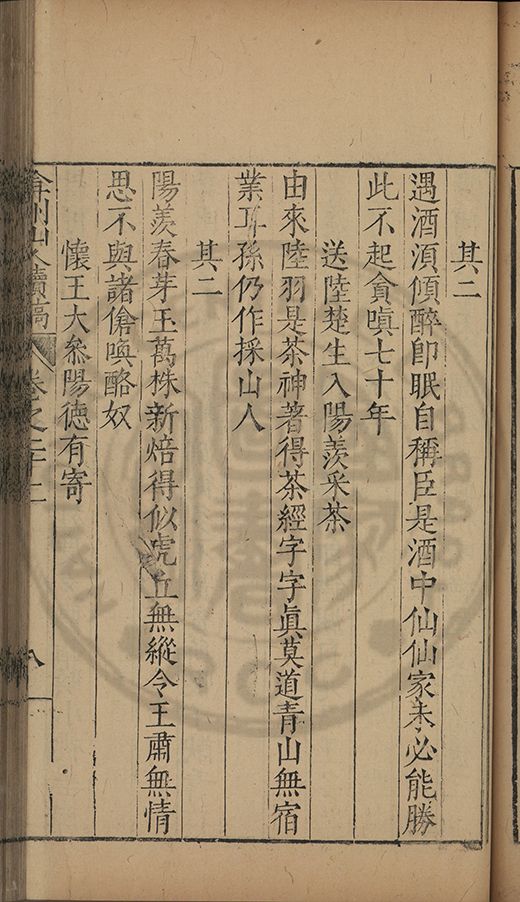 其二
遇酒湏傾醉即眠自稱臣是酒中仙仙家未必能勝
此不起貪嗔七十年
送陸楚生入陽羨采茶
由來陸羽是茶神著得茶經字字真莫道青山無宿
業耳孫仍作採山人
其二
陽羨春芽玉萬株新焙得似虎丘無縱令王肅無情
思不與諸傖喚酪奴
懷王大叅陽德有寄
弇州山人續稿 卷之二十二 八